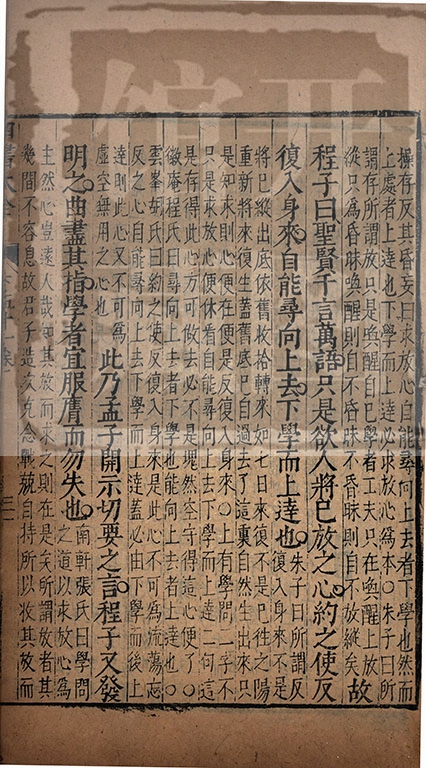 操存反其昏妄曰求放心自能尋向上去者下學也然而
上處者上達也下學而上達必求放心為本○朱子曰所
謂存所謂放只是喚醒自已學者工夫只在喚醒上放
從只為昏昧喚醒則自不昏昧不昏昧則自不放縱矣故
程子曰聖賢千言萬語只是欲人將已放之心約之使反
復入身來自能尋向上去下學而上達也朱子曰所謂反
復入身來不是
將已縱出底依舊收拾轉來如七日來復不是已往之陽
重新將來復生蓋舊底已自過去了這裏自然生出來只
是知求則心便在便是反復入身來○上有學問二字不
只是求放心便休看自能尋向上去下學而上達何這
是存得此心方可做去必不是塊然空守得這心便了○
徽庵程氏曰尋向上去者下學也能向上去者上達也○
雲峯胡氏曰約之使反復入身來是此心不可為流蕩忘
反之心自能尋向上去下學而上達蓋必由下學而後上
達則此心又不可為
虛空無用之心也此乃孟子開示切要之言程子又發
明之曲盡其指學者宜服膺而勿失也南軒張氏曰學問
之道以求放心為
主然心豈遠人哉知其放而求之則在是矣所謂放者其
幾間不容息故君子造次克念戰兢自持所以收其放而
四書大全